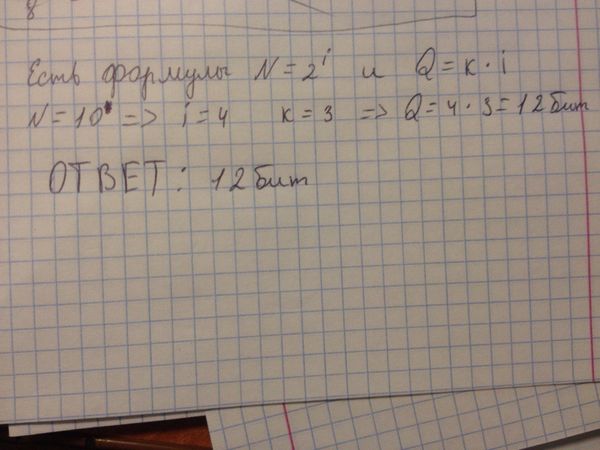 8
Есть формулы N = 2^i и Q = к · i
N = 10 => i = 4 к = 3 => Q = 4 · 3 = 12 бит
ОТВЕТ: 12 бит